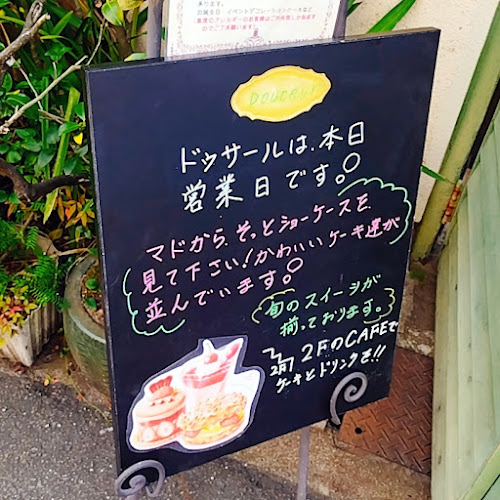 DOUCEUR
ドゥサールは、本日
営業日です。
マドから、そっとショーケースを
見て下さい!かわいいケーキ達が
並んでいます。
旬のスイーツが
揃っております。
2F 2FのCAFEで
ケーキとドリンクを!!